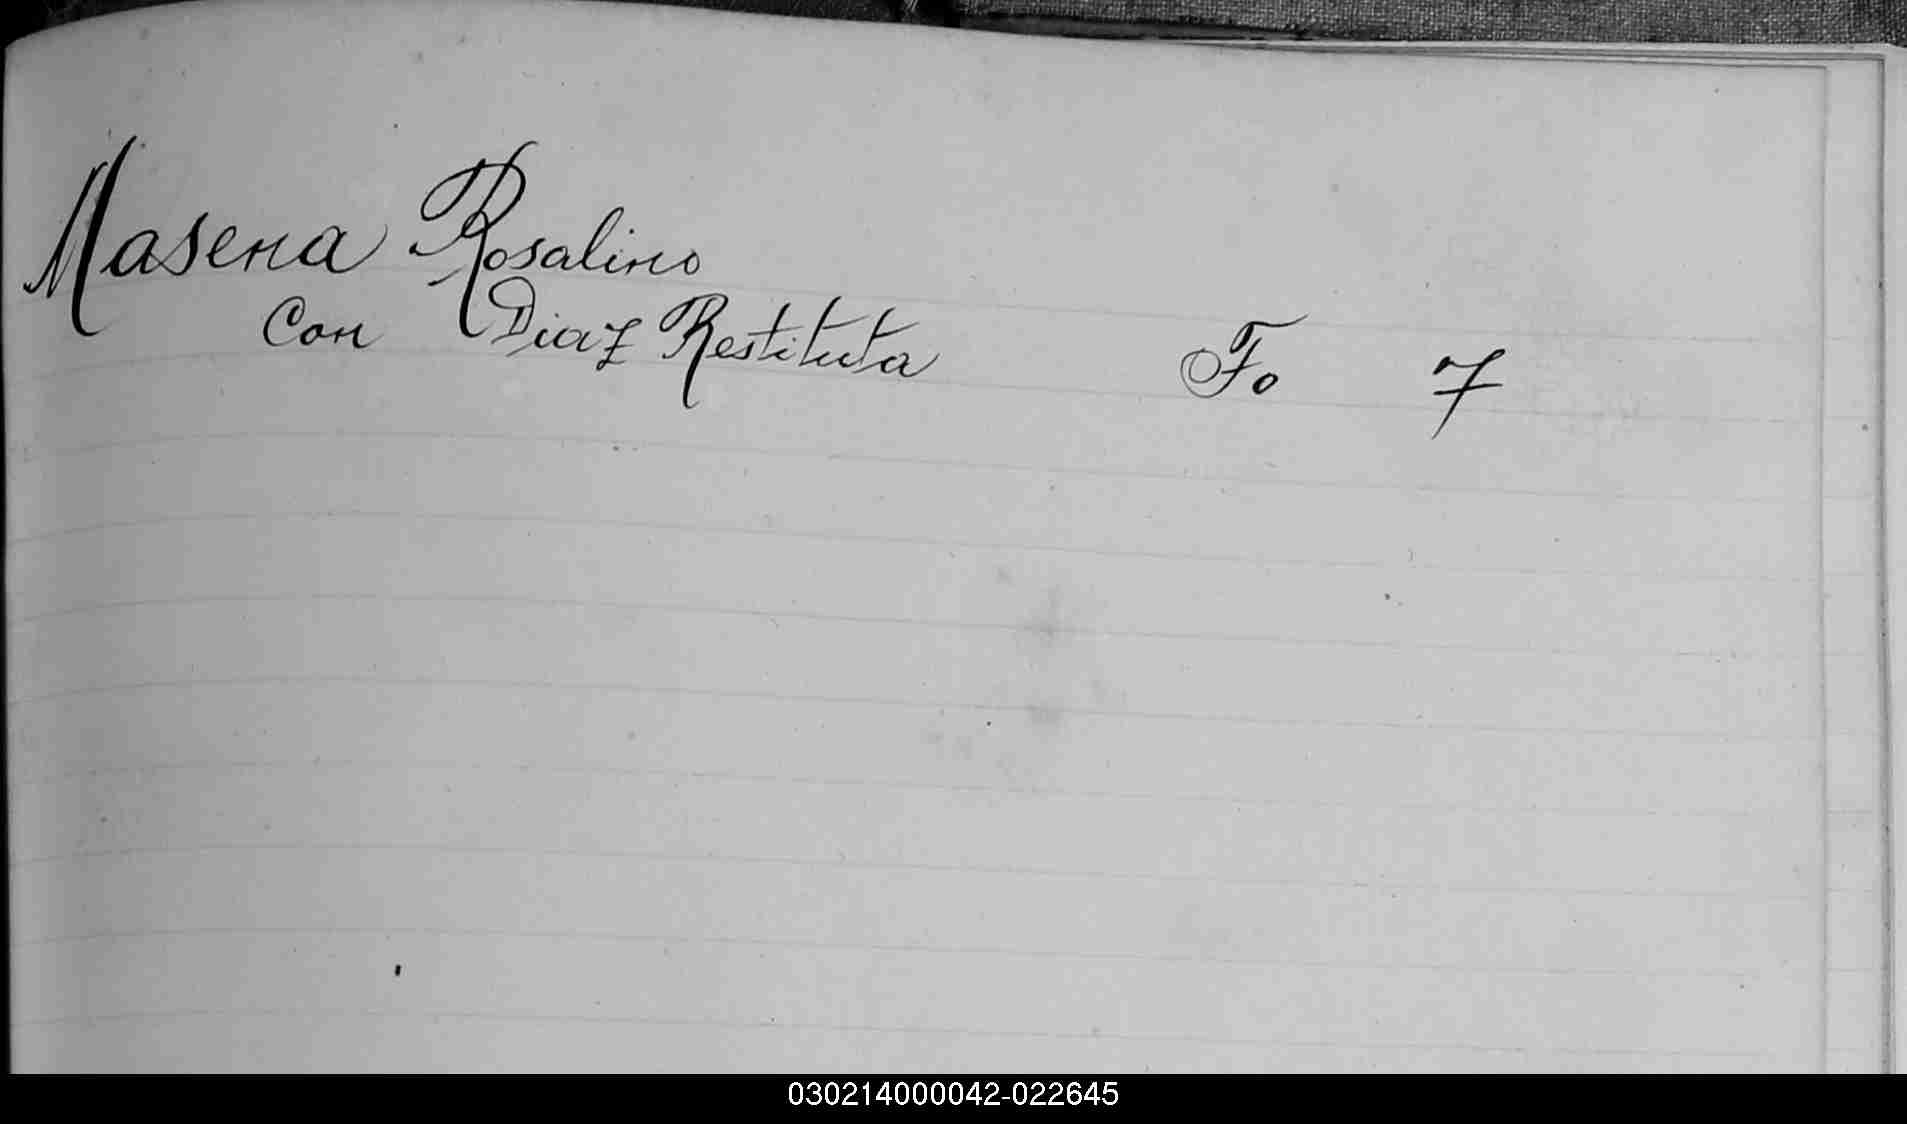 Masena Rosalino
Con Diaz Restituta Fo 7
030214000042-022645